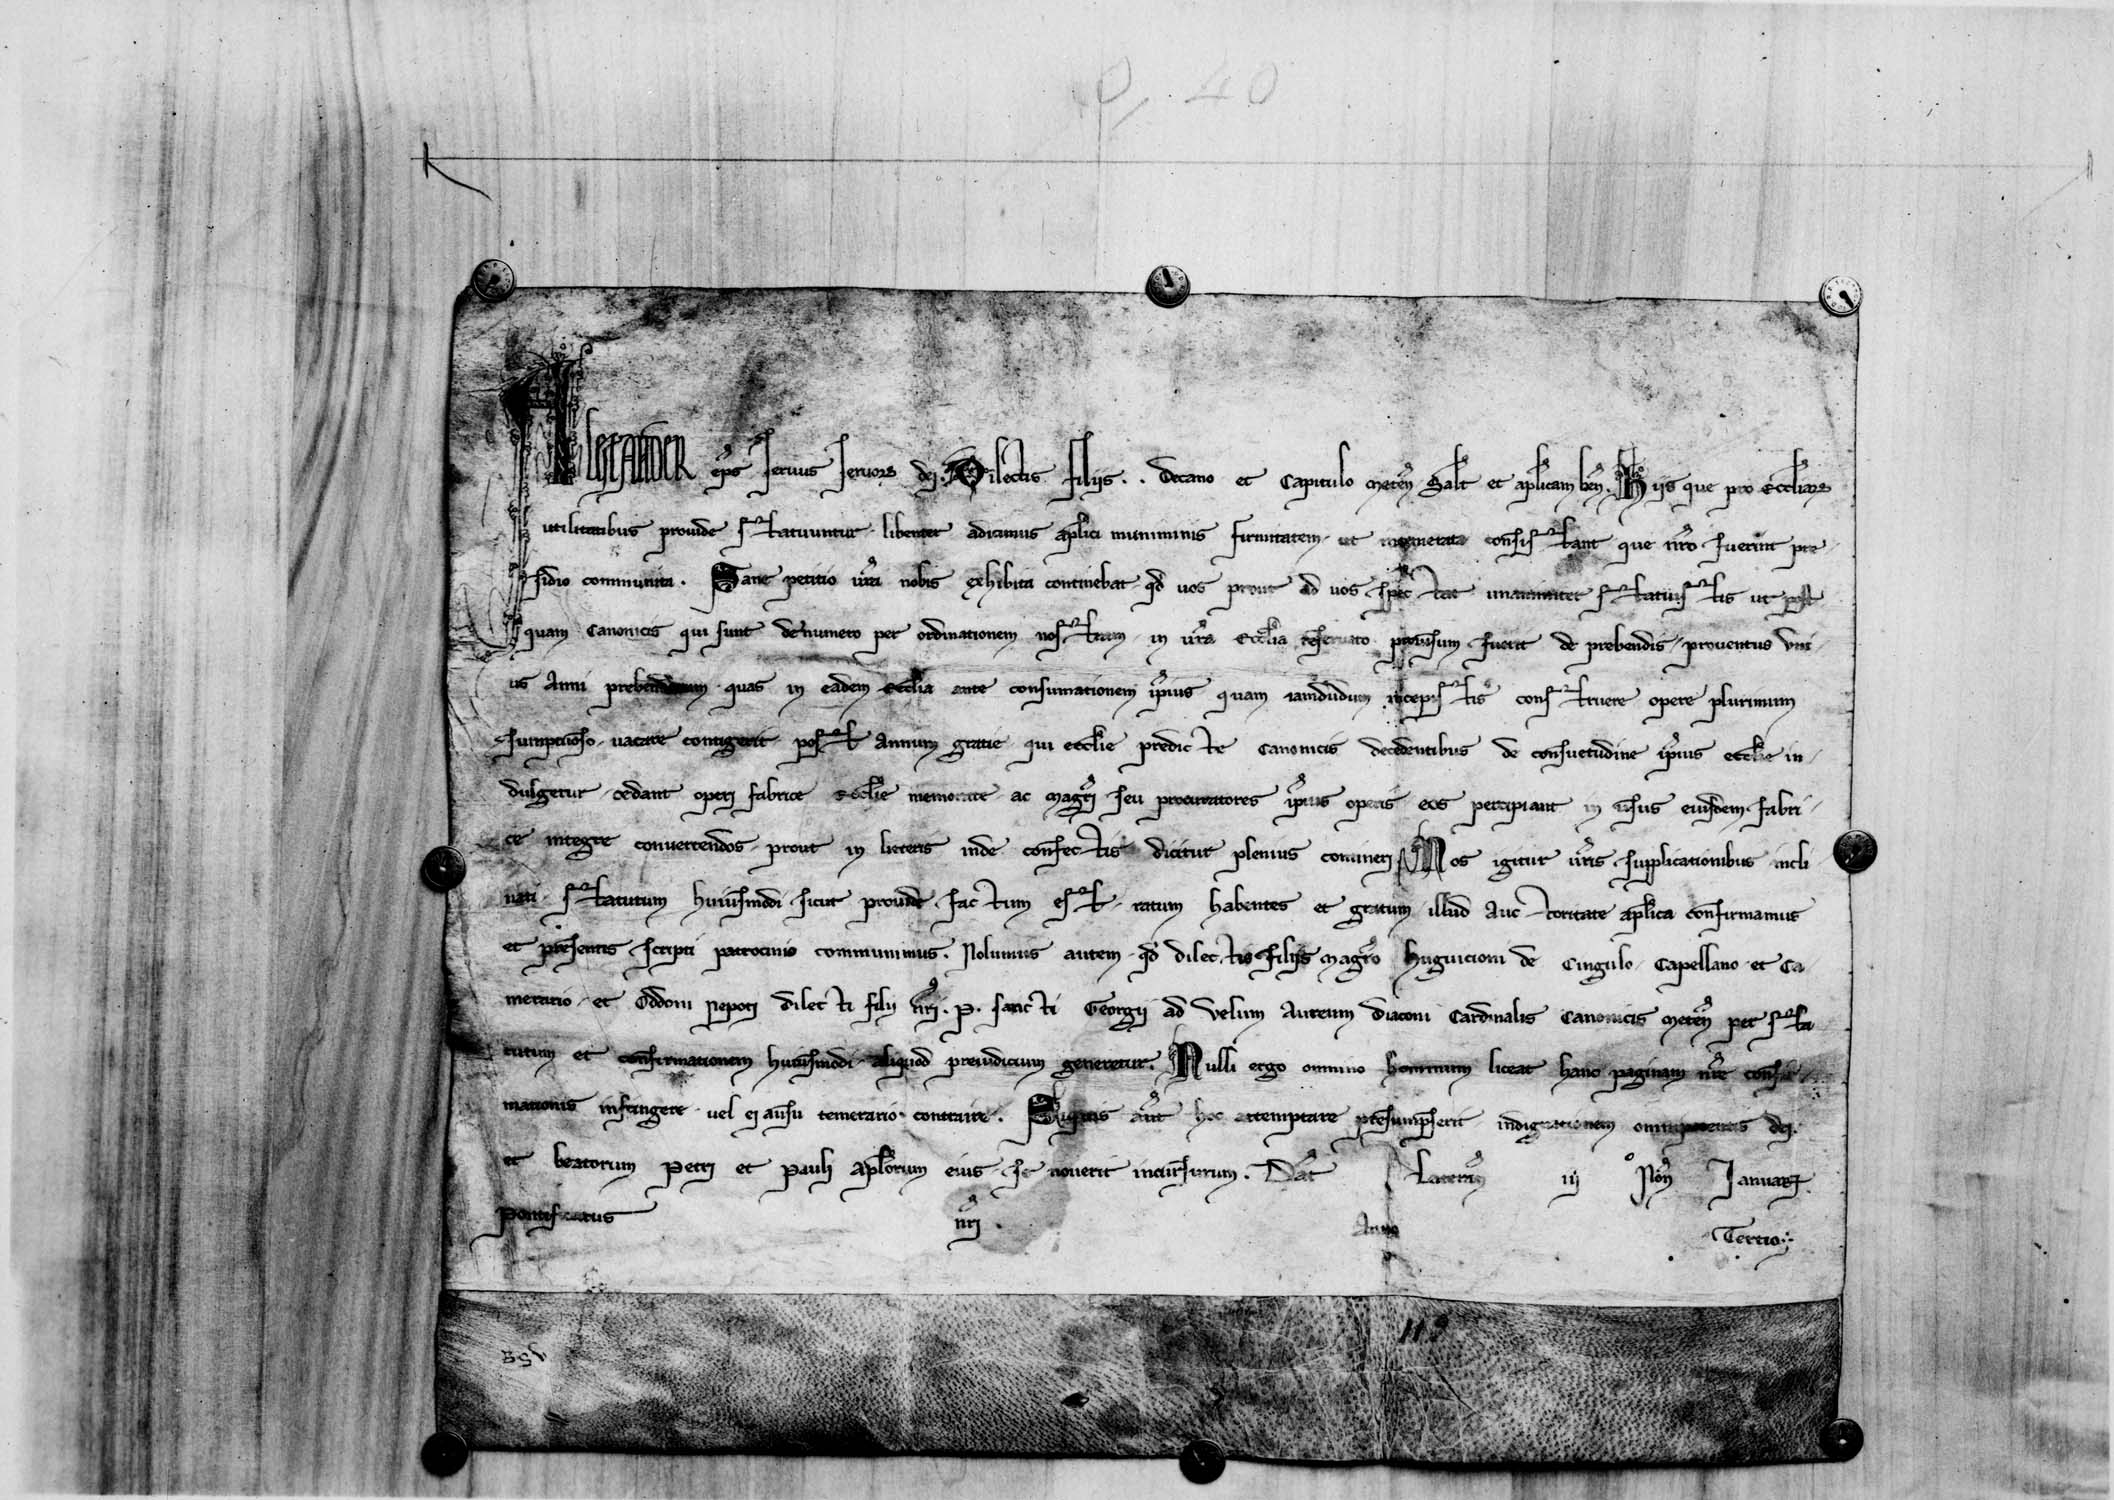 0,40
Alexander ep̅s seruus seruoꝝ dei. Dilectis filiis .. Decano et Capitulo Meteñ Salt̅ et aplicam ben̅. Hiis que pro eccl̅iaꝝ
utilitatibus prouide statuuntur libenter adicimus apl̅ici muniminis firmitatem ut consistant que nr̅o fuerint pre
sidio communita. Sane petitio ur̅a nobis exhibita continebat qd̅ uos prout ad uos spectat unanimiter statuistis ut post
quam Canonicis qui sunt de numero per ordinationem nostram in ur̅a eccl̅ia reseruato prouisum fuerit de prebendis prouentus vni
us Anni prebendarum quas in eadem eccl̅ia ante consumationem ip̅ius quam iamdudum incepistis construere opere plurimum
sumptuoso uacare contigerit post Annum gratie qui eccl̅ie predicte Canonicis decedentibus de consuetudine ip̅ius eccl̅ie in
dulgetur cedant operi fabrice eccl̅ie memorate ac magr̅i seu procuratores ip̅ius operis eos percipiant in usus eiusdem fabri
ce integre conuertendos prout in litteris inde confectis dicitur plenius contineri Nos igitur ur̅is supplicationibus incli
nati statutum huiusmodi sicut prouide factum est ratum habentes et gratum illud Auctoritate apl̅ica confirmamus
et presentis scripti patrocinio communimus. Nolumus autem qd̅ dilectis filiis magr̅o Huguicioni de Cingulo Capellano et Ca
merario et Oddoni Nepoti dilecti filii nr̅i .P. sancti Georgii ad Velum Aureum diaconi Cardinalis Canonicis Meteñ per sta
tutum et confirmationem huiusmodi aliquod preiudicium generetur. Nulli ergo omnino hominum liceat hanc paginam nr̅e confir
mationis infringere uel ei ausu temerario contraire. Siquis aut̅ hoc attemptare presumpserit indignationem omnipotentis dei.
et beatorum Petri et Pauli apl̅orum eius se nouerit incursurum. Dat̅ Laterañ iij Noñ Ianuarij.
Pontificatus nr̅i . Anno Tertio.
119